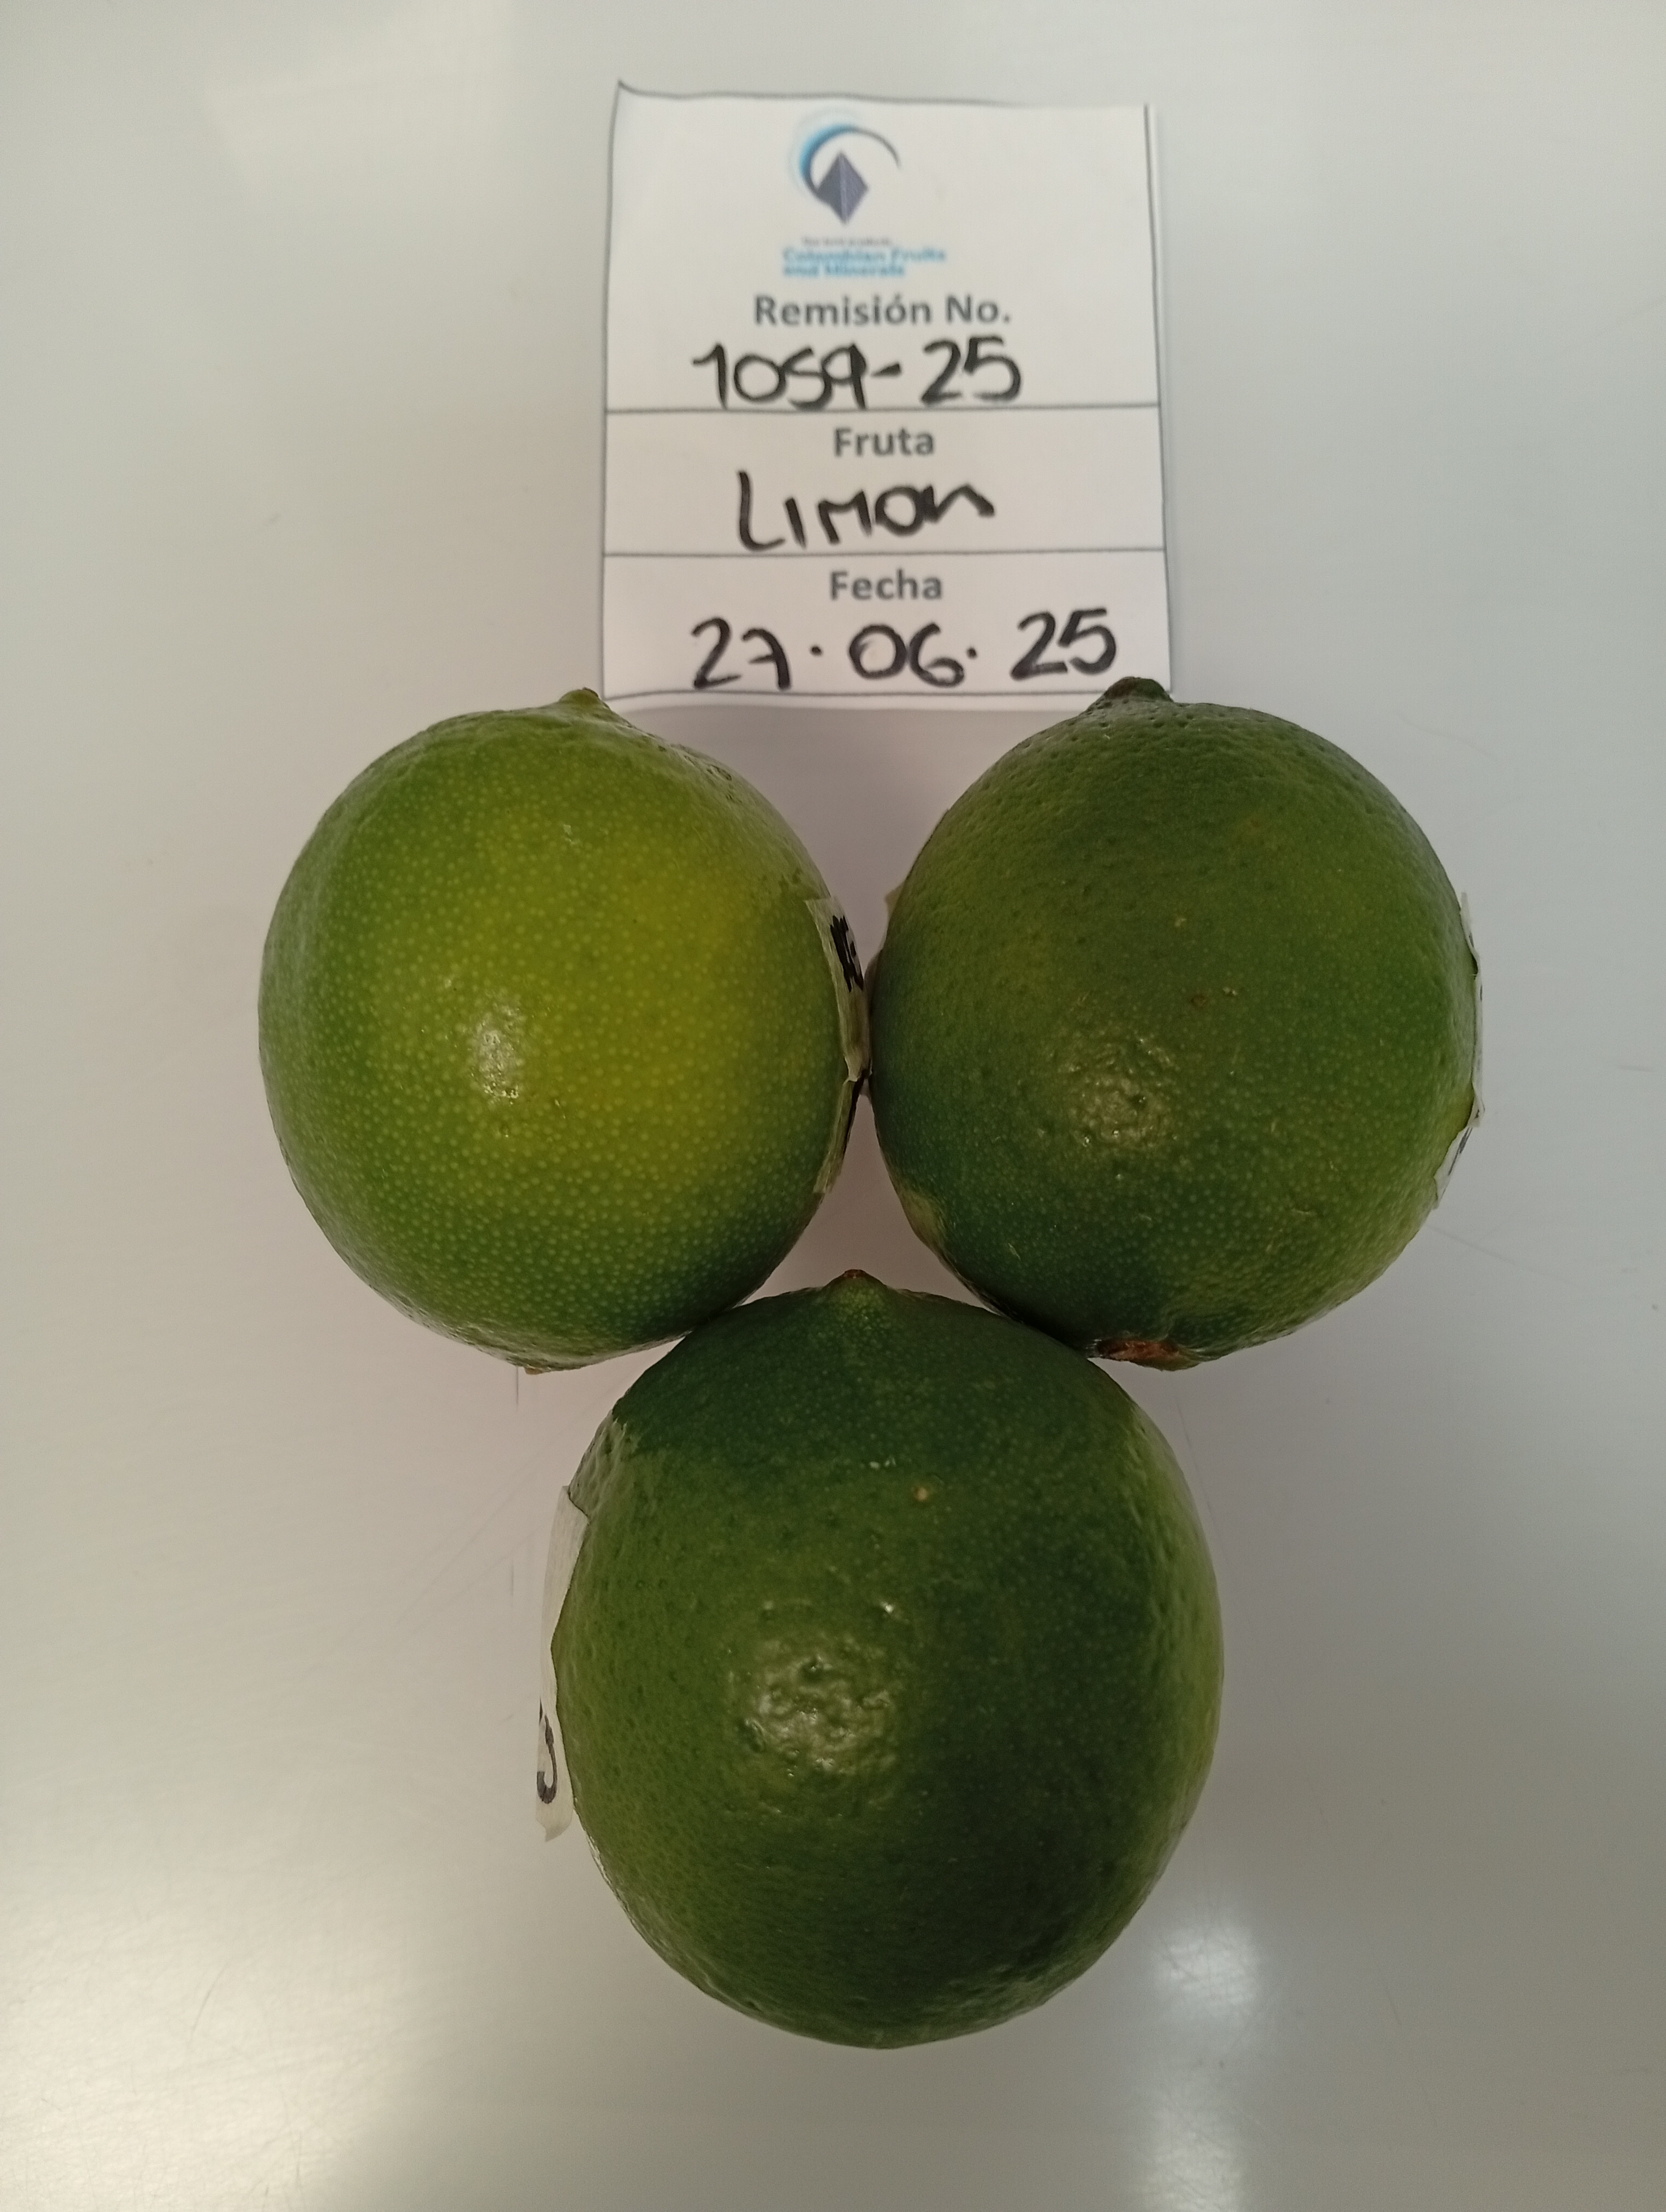 Colombian Fruits
and Minerals
Remisión No.
1059-25
Fruta
Limon
Fecha
27·06·25